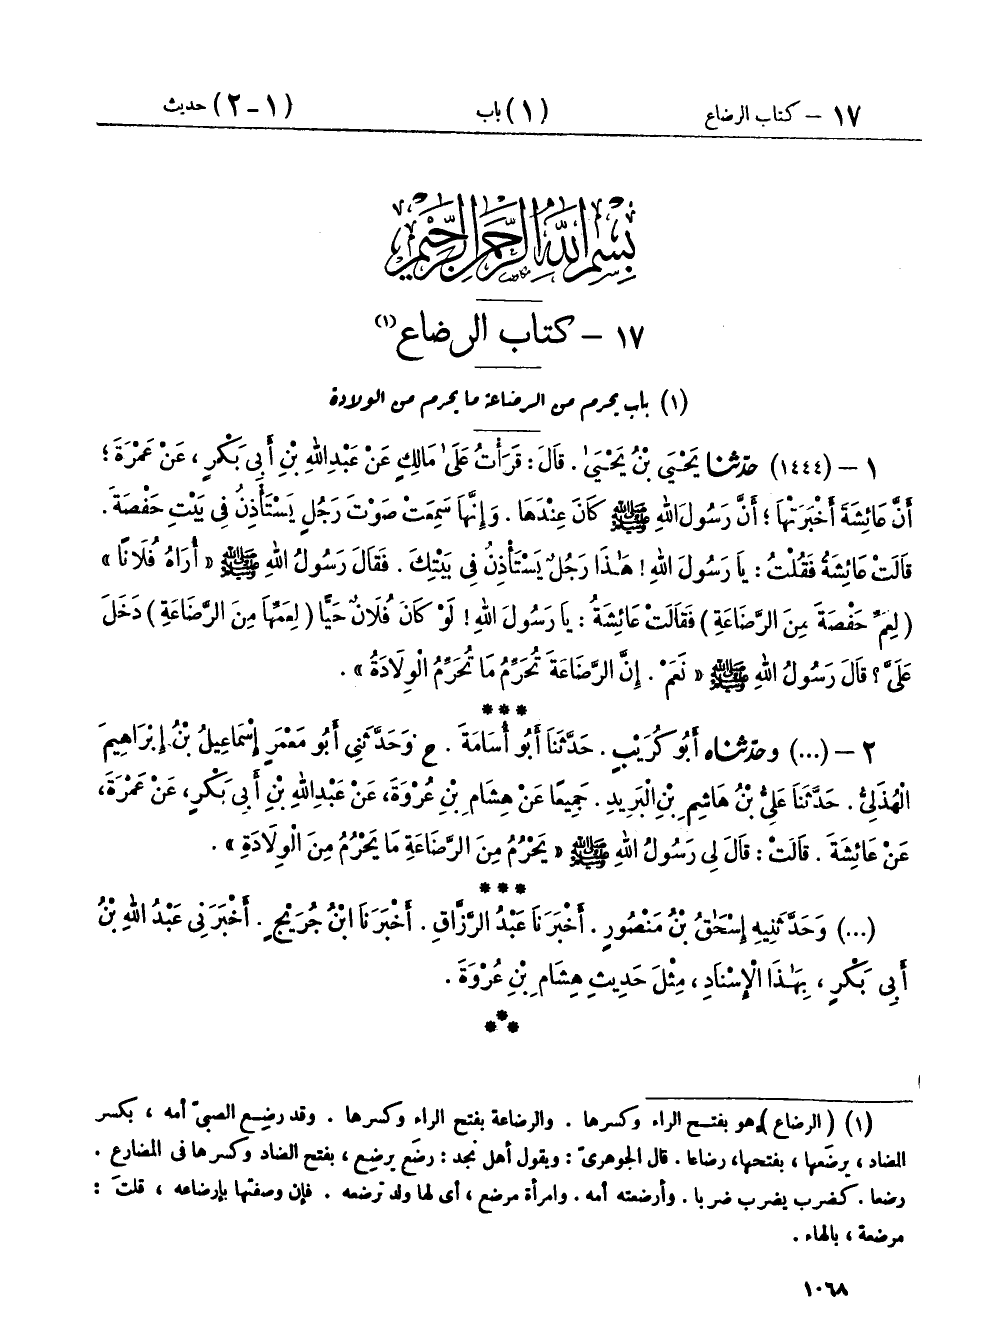 ١٧ – كتاب الرضاع (١) باب (١-٢) حديث
بِسْمِ اللهِ الرَّحْمٰنِ الرَّحِيمِ
١٧ – كتاب الرضاع (١)
(١) باب يحرم من الرضاعة ما يحرم من الولادة
١ – (١٤٤٤) حدّثنا يَحْيَىٰ بْنُ يَحْيَىٰ . قَالَ : قَرَأْتُ عَلَىٰ مَالِكٍ عَنْ عَبْدِ اللهِ بْنِ أَبِي بَكْرٍ ، عَنْ عَمْرَةَ ؛
أَنَّ عَائِشَةَ أَخْبَرَتْهَا ؛ أَنَّ رَسُولَ اللهِ ﷺ كَانَ عِنْدَهَا . وَإِنَّهَا سَمِعَتْ صَوْتَ رَجُلٍ يَسْتَأْذِنُ فِي بَيْتِ حَفْصَةَ .
قَالَتْ عَائِشَةُ فَقُلْتُ : يَا رَسُولَ اللهِ ! هَٰذَا رَجُلٌ يَسْتَأْذِنُ فِي بَيْتِكَ . فَقَالَ رَسُولُ اللهِ ﷺ « أُرَاهُ فُلَانًا »
( لِعَمِّ حَفْصَةَ مِنَ الرَّضَاعَةِ ) فَقَالَتْ عَائِشَةُ : يَا رَسُولَ اللهِ ! لَوْ كَانَ فُلَانٌ حَيًّا ( لِعَمِّهَا مِنَ الرَّضَاعَةِ ) دَخَلَ
عَلَيَّ ؟ قَالَ رَسُولُ اللهِ ﷺ « نَعَمْ . إِنَّ الرَّضَاعَةَ تُحَرِّمُ مَا تُحَرِّمُ الْوِلَادَةُ » .
***
٢ – (...) وحدّثناه أَبُو كُرَيْبٍ . حَدَّثَنَا أَبُو أُسَامَةَ . ح وَحَدَّثَنِي أَبُو مَعْمَرٍ إِسْمَاعِيلُ بْنُ إِبْرَاهِيمَ
الْهُذَلِيُّ . حَدَّثَنَا عَلِيُّ بْنُ هَاشِمِ بْنِ الْبَرِيدِ . جَمِيعًا عَنْ هِشَامِ بْنِ عُرْوَةَ، عَنْ عَبْدِ اللهِ بْنِ أَبِي بَكْرٍ، عَنْ عَمْرَةَ،
عَنْ عَائِشَةَ . قَالَتْ : قَالَ لِي رَسُولُ اللهِ ﷺ « يَحْرُمُ مِنَ الرَّضَاعَةِ مَا يَحْرُمُ مِنَ الْوِلَادَةِ » .
***
(...) وَحَدَّثَنِيهِ إِسْحَٰقُ بْنُ مَنْصُورٍ . أَخْبَرَنَا عَبْدُ الرَّزَّاقِ . أَخْبَرَنَا ابْنُ جُرَيْجٍ . أَخْبَرَنِي عَبْدُ اللهِ بْنُ
أَبِي بَكْرٍ ، بِهَٰذَا الْإِسْنَادِ ، مِثْلَ حَدِيثِ هِشَامِ بْنِ عُرْوَةَ .
***
(١) (الرضاع) هو بفتح الراء وكسرها . والرضاعة بفتح الراء وكسرها . وقد رضِع الصبيّ أمه ، بكسر
الضاد ، يرضَعها ، بفتحها، رضاعا . قال الجوهريّ : ويقول أهل نجد : رضَع يرضِع ، بفتح الضاد وكسرها فى المضارع .
رضعا . كضرب يضرب ضربا . وأرضعته أمه . وامرأة مرضع ، أى لها ولد ترضعه . فإن وصفتها بإرضاعه ، قلت :
مرضعة ، بالهاء .
١٠٦٨